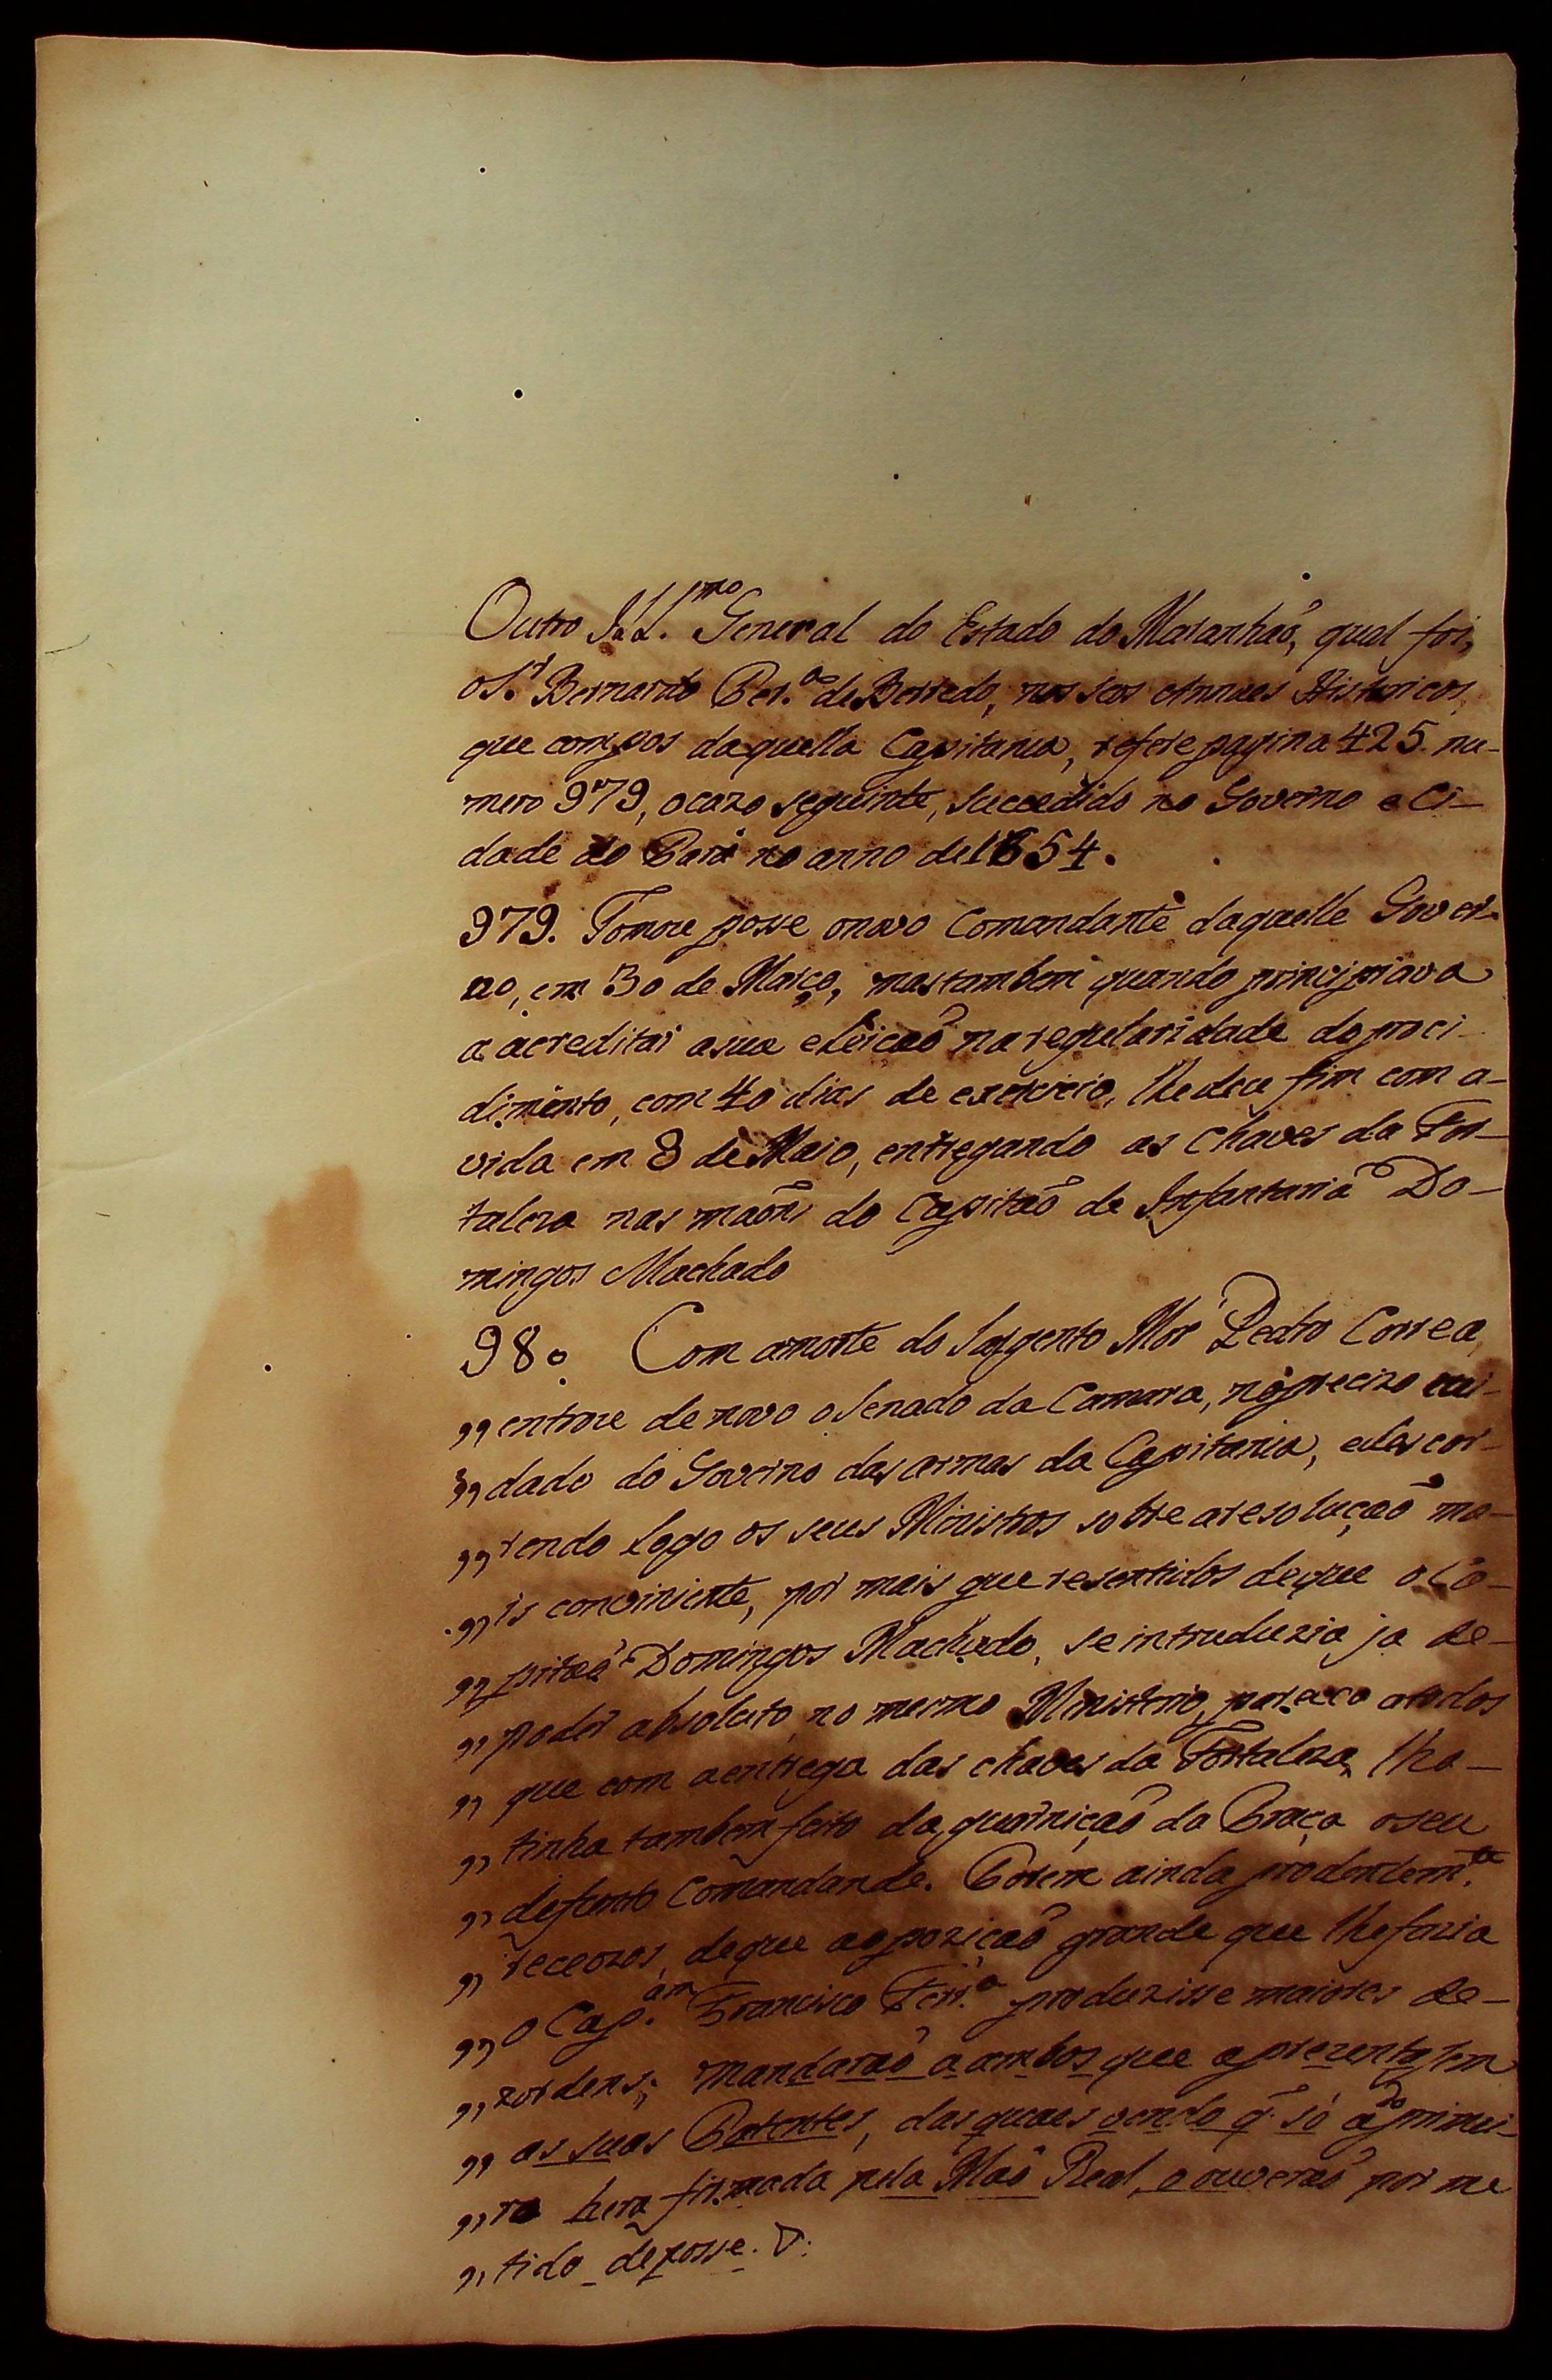 Outro Ill.mo General do Estado do Maranhaõ, qual foi,
o S.r Bernardo Per.a de Berredo, nos seos Annaes Historicos,
que compos daquella Capitania, refere pagina 425. nu-
mero 979, o cazo seguinte, succedido no Governo e Ci-
dade do Pará no anno de 1654.
979. Tomou posse o novo Comandante daquelle Gover-
no, em 30 de Março, mas tambem quando principiava
a acreditar a sua eleicaõ na regularidade do proci-
dimento, com 40 dias de exercicio, lhe deu fim com a-
vida em 8 de Maio, entregando as chaves da For-
taleza nas maõns do Capitaõ de Infantaria Do-
mingos Machado
980. Com a morte do Sargento Mór Pedro Correa,
,, entrou de novo o Senado da Camara, no precizo cui-
,, dado do Governo das armas da Capitania, e discor-
,, rendo logo os seus Ministros sobre a resoluçaõ ma-
,, is conviniente, por mais que resentidos de que o Ca-
,, pitaõ Domingos Machado, se introduzia ja de-
,, poder absoluto no mesmo Ministerio, pareceo a todos
,, que com a entrega das chaves da Fortaleza, lha-
,, tinha tambem feito da guarniçaõ da Praça o seu
,, defunto Comandande. Porem ainda prodentem.te
,, receozos, de que a opoziçaõ grande que lhe fazia
,, o Cap.am Francisco Ferr.a produzisse maiores de-
,, zordens; mandaraõ a ambos que aprezentasem
,, as suas Patentes, das quaes vendo q̃ só a do primei-
,, ro hera firmada pela Maõ Real, o ouveraõ por me
,, tido de posse. V.